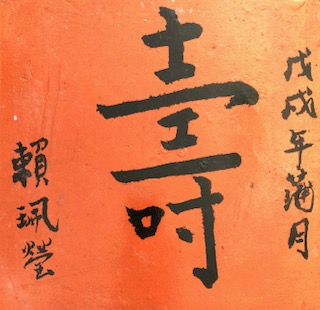 戊戌年蒲月
壽
賴珮瑩